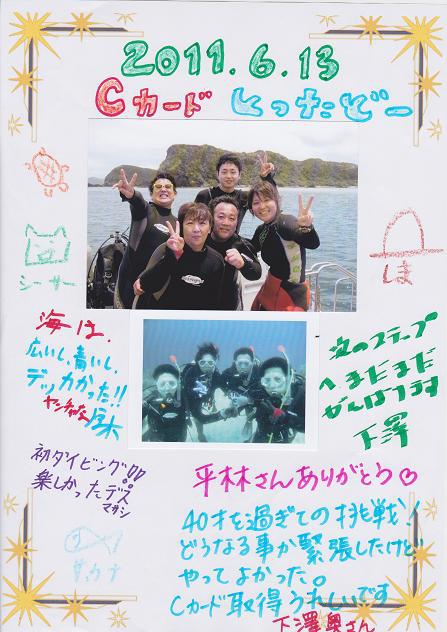 2011.6.13
Cカード とったどー
シーサー
しま
海は、
広いし、青いし、
デッカかった!!
ヤンチャな
次のステップ
へ まだまだ
がんばります
下澤
初ダイビング!!
楽しかったデス
平林さんありがとう♡
サカナ
40才を過ぎての挑戦!
どうなる事か緊張したけど
やってよかった。
Cカード取得うれしいです
下澤奥さん